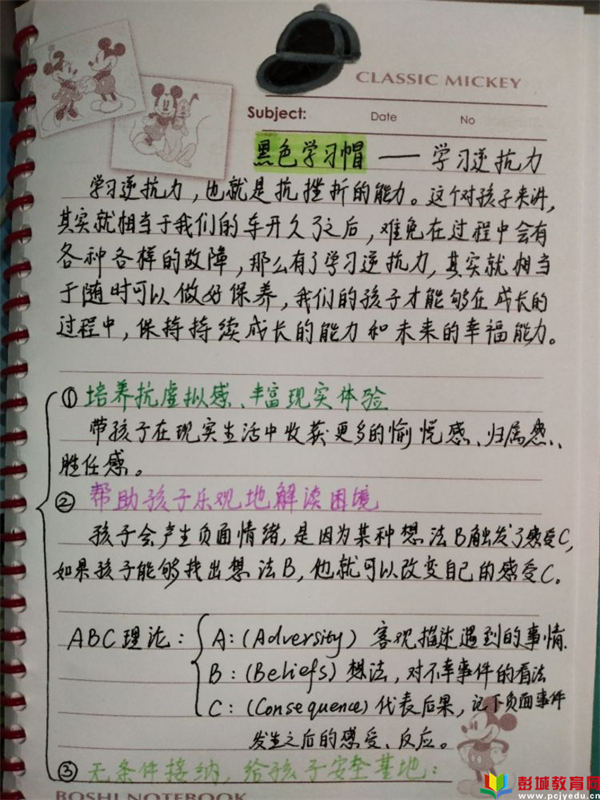 CLASSIC MICKEY
Subject:
Date
No
黑色学习帽 —— 学习逆抗力
学习逆抗力，也就是抗挫折的能力。这个对孩子来讲，
其实就相当于我们的车开久了之后，难免在过程中会有
各种各样的故障，那么有了学习逆抗力，其实就相当
于随时可以做好保养，我们的孩子才能够在成长的
过程中，保持持续成长的能力和未来的幸福能力。
① 培养抗虚拟感、丰富现实体验
带孩子在现实生活中收获更多的愉悦感、归属感、
胜任感。
② 帮助孩子乐观地解读困境
孩子会产生负面情绪，是因为某种想法B触发了感受C，
如果孩子能够找出想法B，他就可以改变自己的感受C。
ABC理论：
A：(Adversity) 客观描述遇到的事情.
B：(Beliefs) 想法，对不幸事件的看法
C：(Consequence) 代表后果，记下负面事件
发生之后的感受、反应。
③ 无条件接纳，给孩子安全基地：
BOSHI NOTEBOOK
彭城教育网
www.pcjyedu.cn